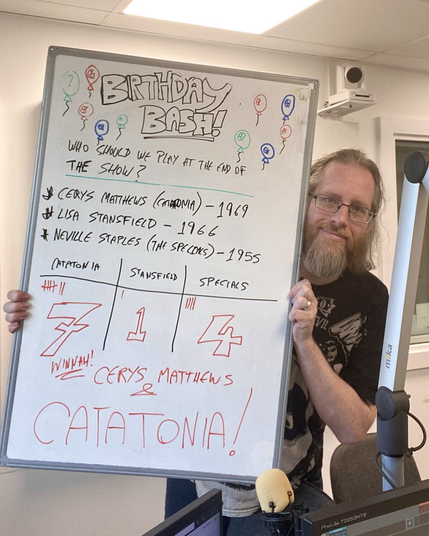 BIRTHDAY
BASH!
WHO SHOULD WE PLAY AT THE END OF
THE SHOW?
CERYS MATTHEWS (CATATONIA) – 1969
LISA STANSFIELD – 1966
NEVILLE STAPLES (THE SPECIALS) – 1955
CATATONIA STANSFIELD SPECIALS
7 1 4
WINNAH!
CERYS MATTHEWS
&
CATATONIA!
mika